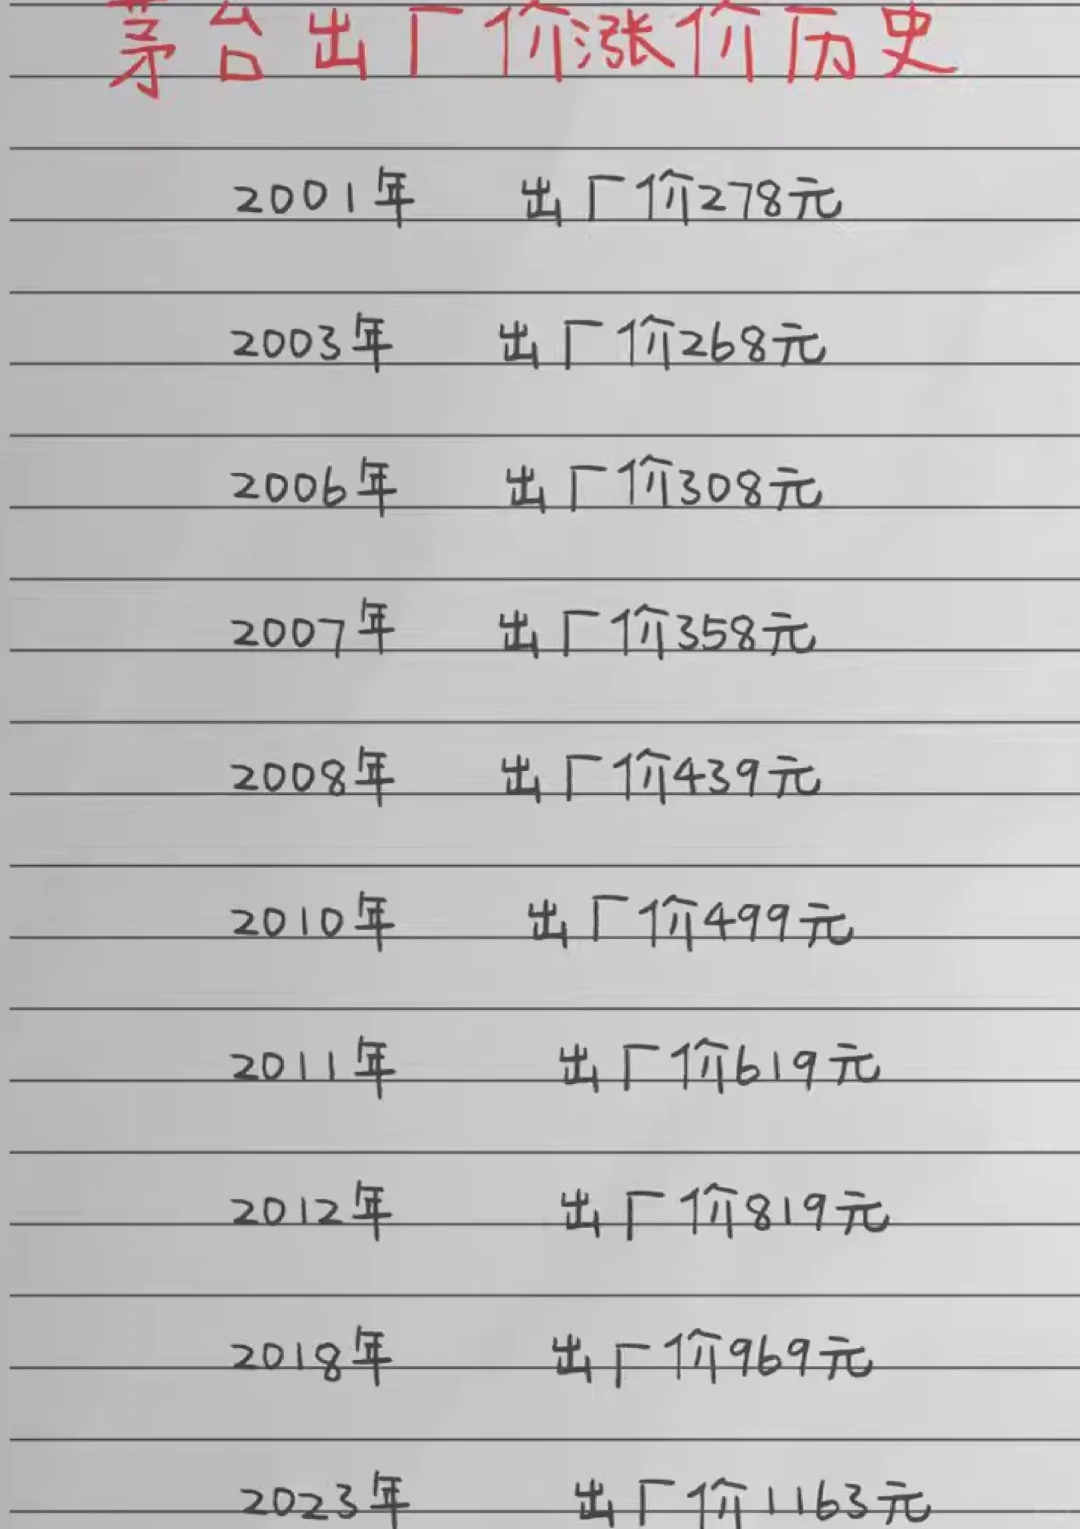 茅台出厂价涨价历史
2001年 出厂价278元
2003年 出厂价268元
2006年 出厂价308元
2007年 出厂价358元
2008年 出厂价439元
2010年 出厂价499元
2011年 出厂价619元
2012年 出厂价819元
2018年 出厂价969元
2023年 出厂价1163元